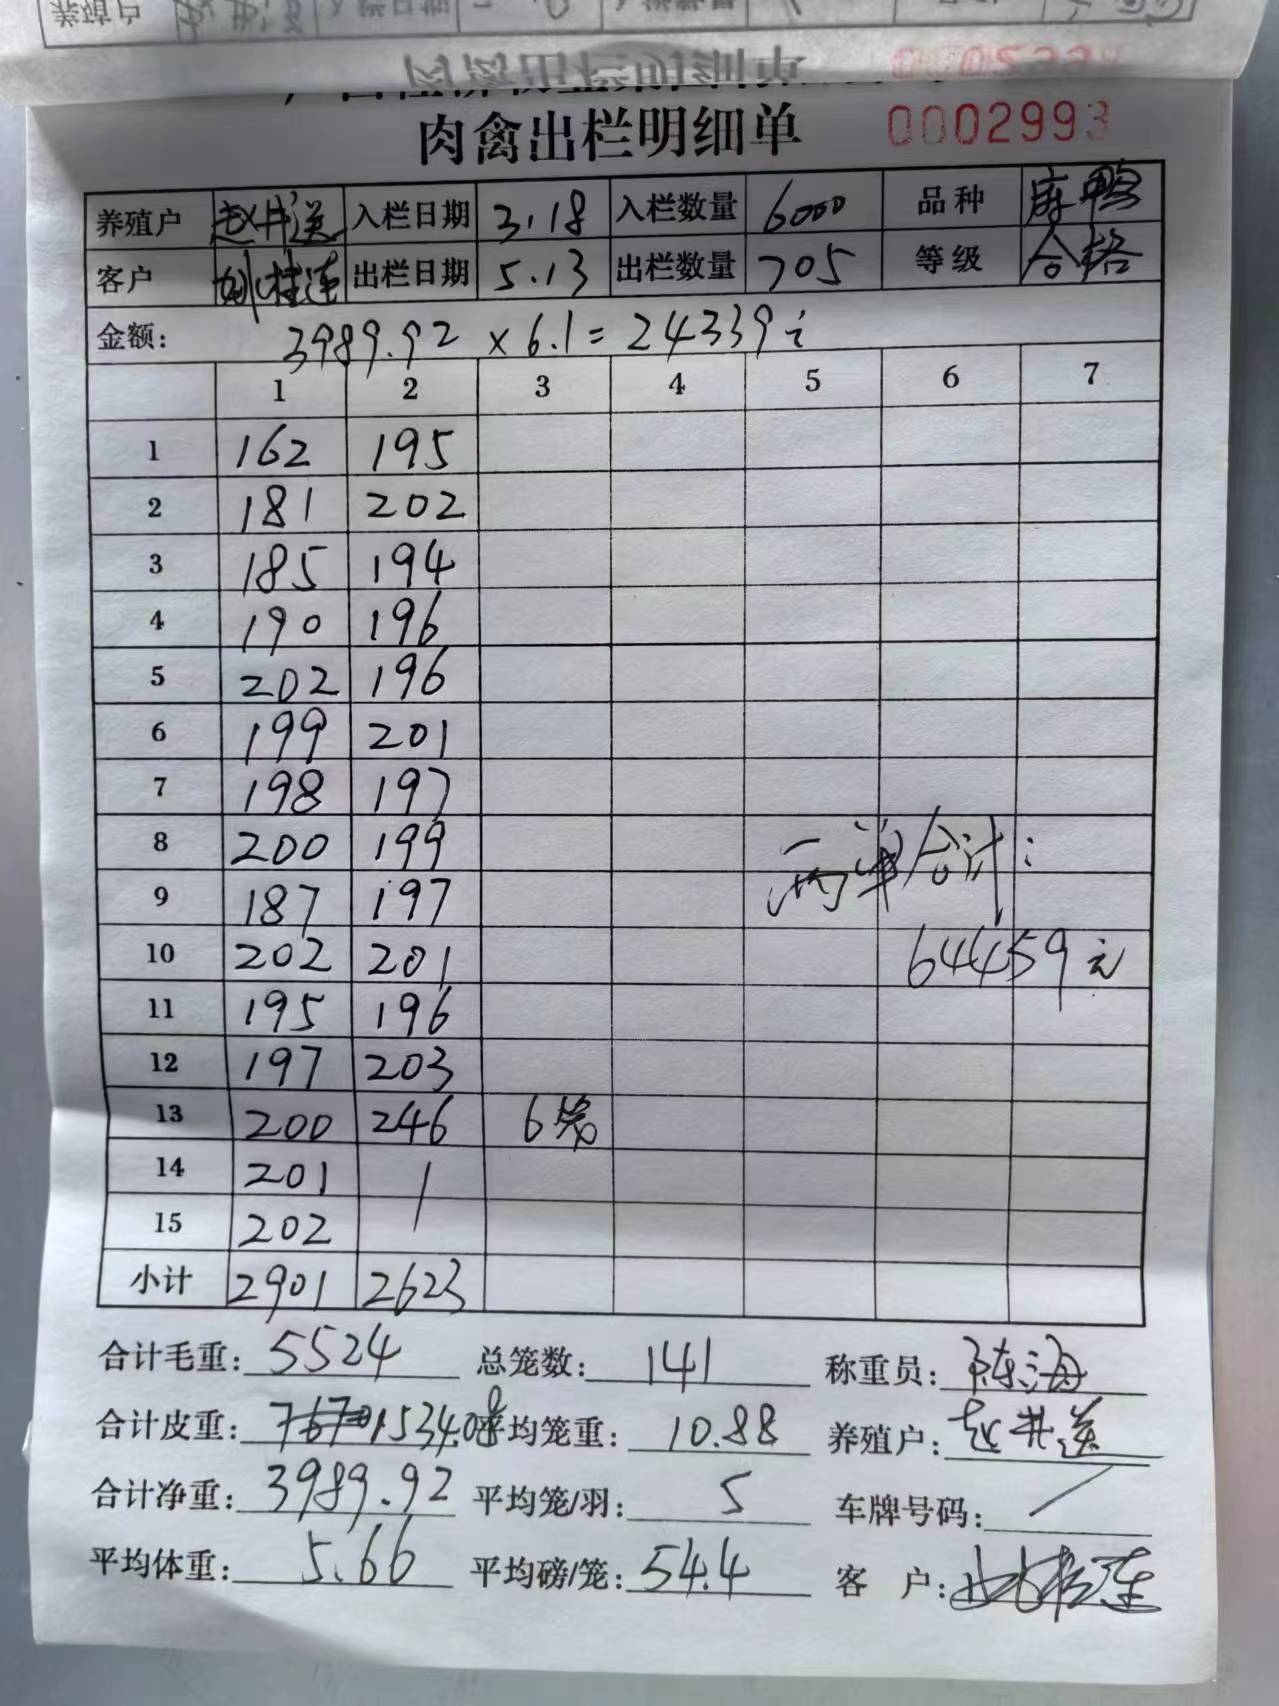 肉禽出栏明细单 0002993
养殖户 赵井送 入栏日期 3.18 入栏数量 6000 品种 麻鸭
客户 姚桂连 出栏日期 5.13 出栏数量 705 等级 合格
金额: 3989.92 × 6.1 = 24339元
1 2 3 4 5 6 7
1 162 195
2 181 202
3 185 194
4 190 196
5 202 196
6 199 201
7 198 197
8 200 199
9 187 197
两单合计:
10 202 201 64459元
11 195 196
12 197 203
13 200 246 6笼
14 201 /
15 202
小计 2901 2623
合计毛重: 5524 总笼数: 141 称重员: 陈海
合计皮重: 1534.08 平均笼重: 10.88 养殖户: 赵井送
合计净重: 3989.92 平均笼/羽: 5 车牌号码: /
平均体重: 5.66 平均磅/笼: 54.4 客 户: 姚桂连